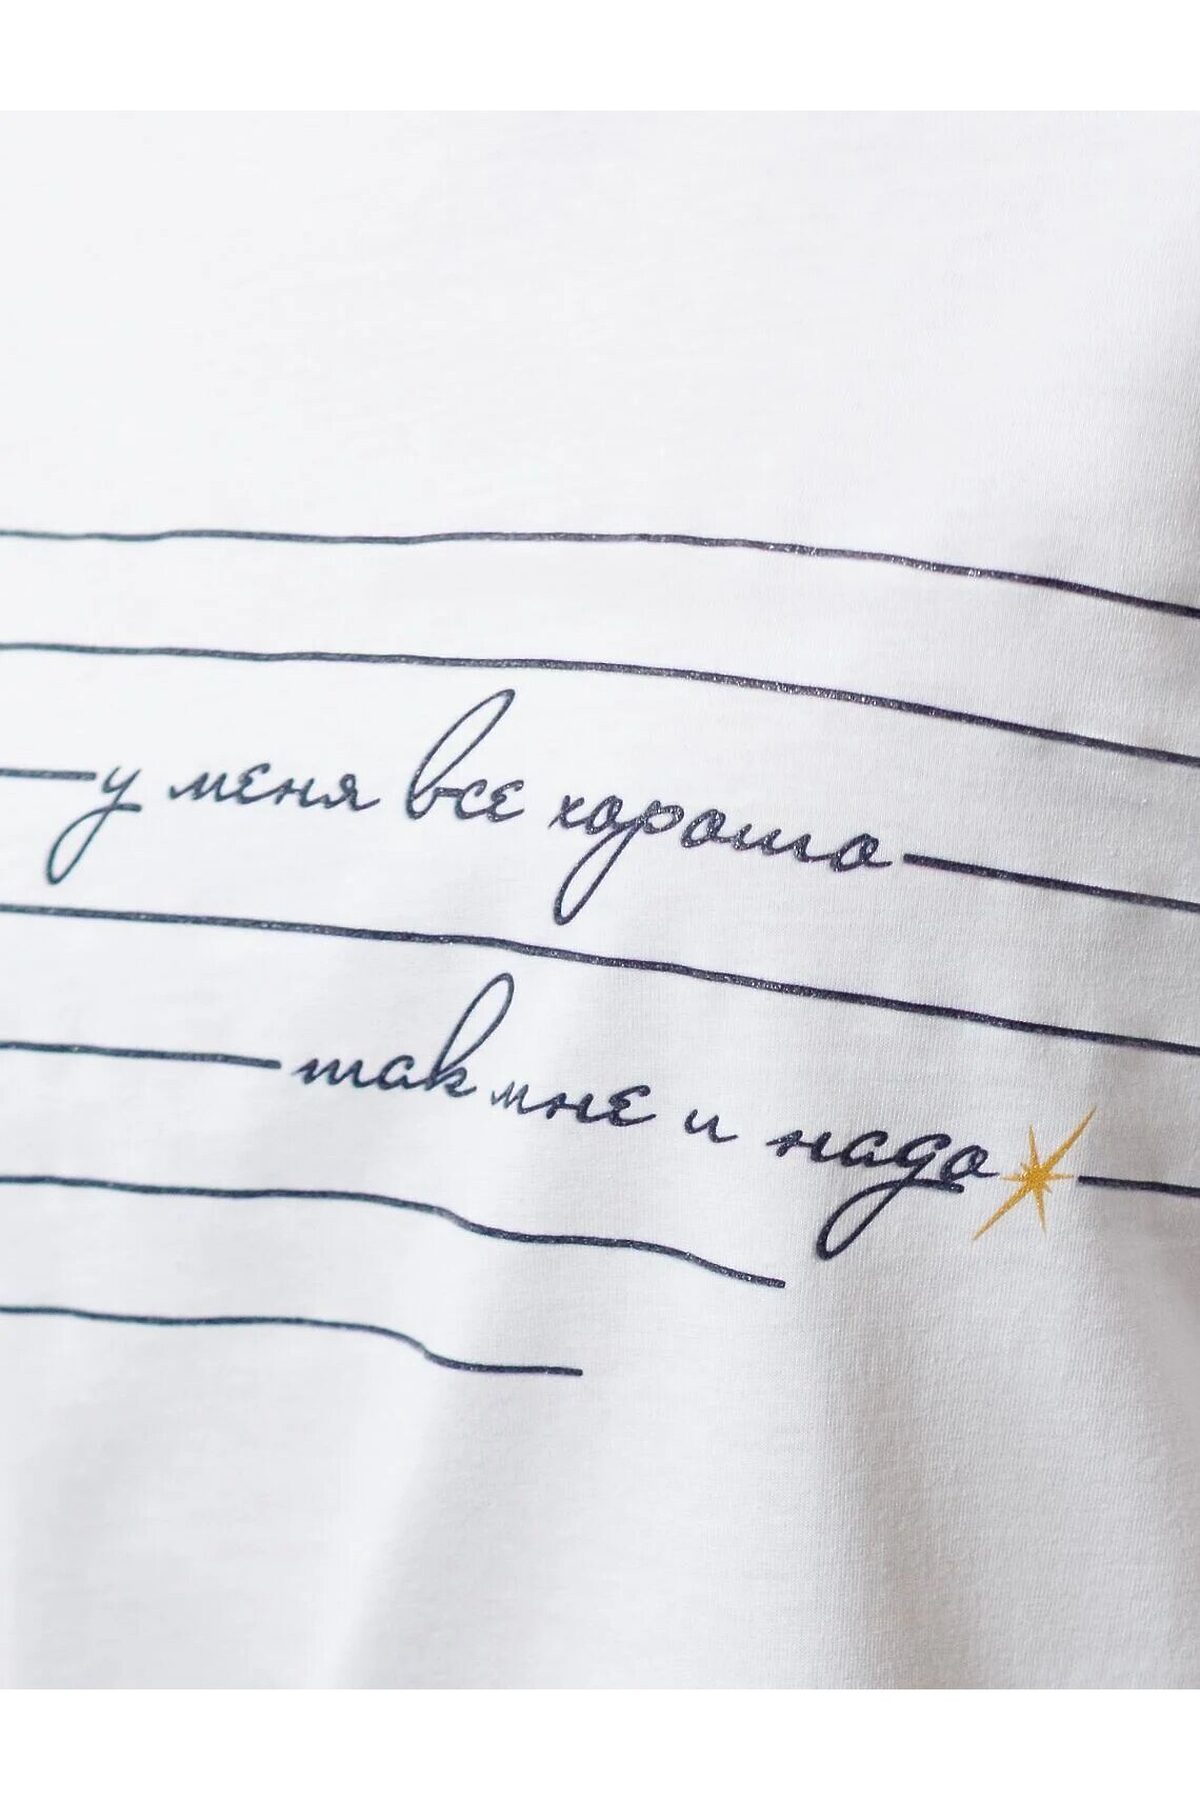 у меня все хорошо
так мне и надо